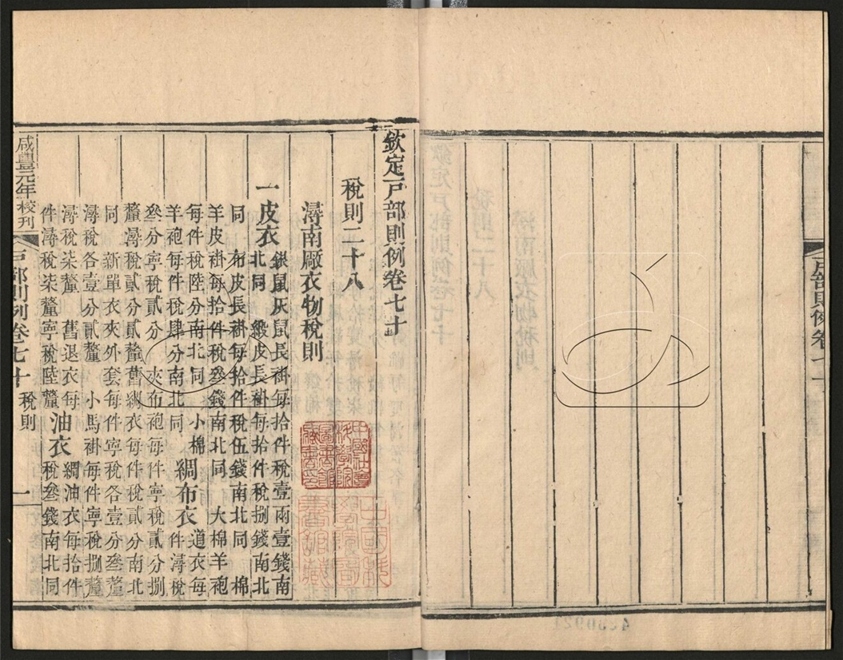 欽定戶部則例卷七十
稅則二十八
潯南廠衣物稅則
一皮衣 銀鼠灰鼠長褂每拾件稅壹兩壹錢南
北同 緞皮長褂每拾件稅捌錢南北
同 布皮長褂每拾件稅伍錢南北同 棉
羊皮褂每拾件稅叄錢南北同 大棉羊袍
每件稅陸分南北同 小棉
羊袍每件稅肆分南北同
綢布衣 道衣每
件潯稅
叄分寧稅貳分 夾布袍每件寧稅貳分捌
釐潯稅貳分貳釐舊綢衣每件稅貳分南北
同 新單衣夾外套每件寧稅各壹分叄釐
潯稅各壹分貳釐 小馬褂每件寧稅捌釐
潯稅柒釐 舊退衣每
件潯稅柒釐寧稅陸釐
油衣 綢油衣每拾件
稅叄錢南北同
咸豐元年校刊 戶部則例卷七十 稅則 一